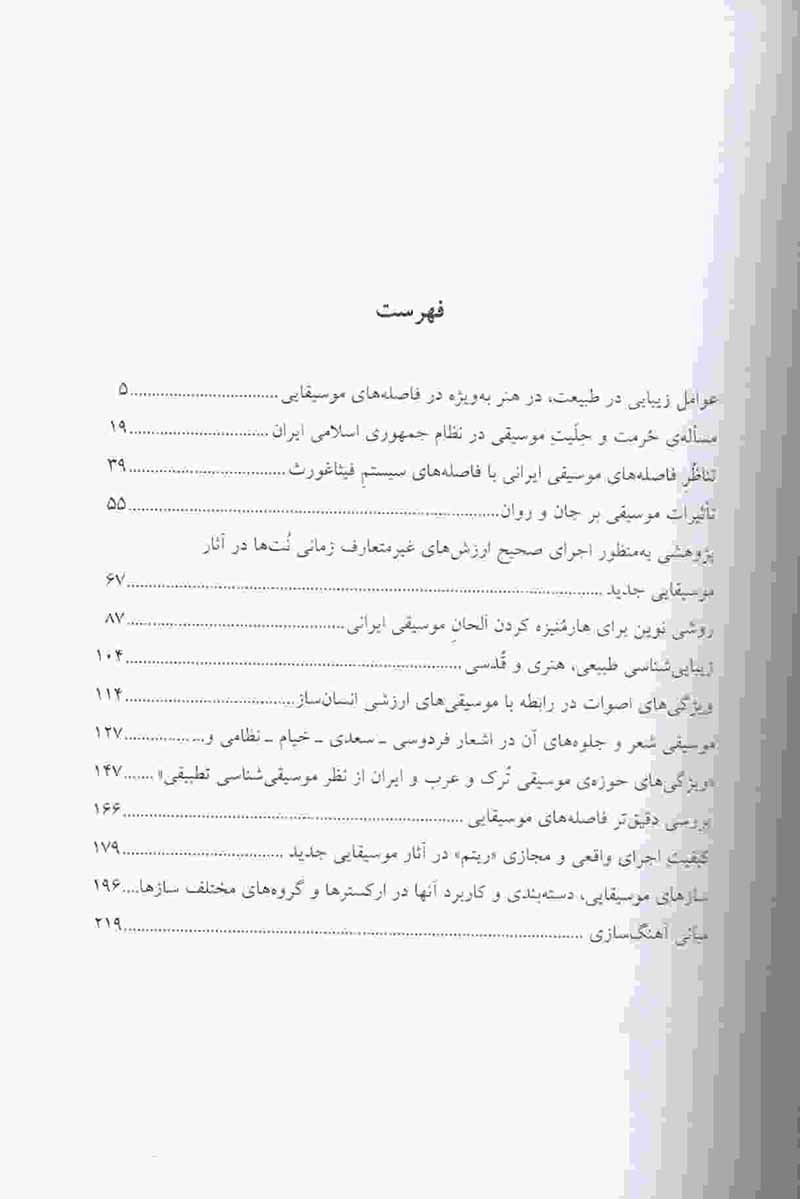 فهرست
عوامل زیبایی در طبیعت، در هنر به‌ویژه در فاصله‌های موسیقایی ................................ ۵
مسأله‌ي حُرمت و حلّیتِ موسیقی در نظام جمهوری اسلامی ایران ................................ ۱۹
تناظُرِ فاصله‌های موسیقی ایرانی با فاصله‌های سیستمِ فیثاغورث ................................ ۳۹
تأثیرات موسیقی بر جان و روان ................................ ۵۵
پژوهشی به‌منظور اجرای صحیح ارزش‌های غیرمتعارف زمانی نُت‌ها در آثار
موسیقایی جدید ................................ ۶۷
روشی نوین برای هارمُنیزه کردن اَلحانِ موسیقی ایرانی ................................ ۸۷
زیبایی‌شناسی طبیعی، هنری و قُدسی ................................ ۱۰۴
ویژگی‌های اصوات در رابطه با موسیقی‌های ارزشی انسان‌ساز ................................ ۱۱۴
موسیقی شعر و جلوه‌های آن در اشعار فردوسی ـ سعدی ـ خیام ـ نظامی و... ................ ۱۲۷
«ویژگی‌های حوزه‌ی موسیقی تُرک و عرب و ایران از نظر موسیقی‌شناسی تطبیقی» ....... ۱۴۷
بررسی دقیق‌تر فاصله‌های موسیقایی ................................ ۱۶۶
کیفیت اجرای واقعی و مجازی «ریتم» در آثار موسیقایی جدید ................................ ۱۷۹
سازهای موسیقایی، دسته‌بندی و کاربرد آنها در ارکسترها و گروه‌های مختلف سازها .... ۱۹۶
مبانی آهنگ‌سازی ................................ ۲۱۹